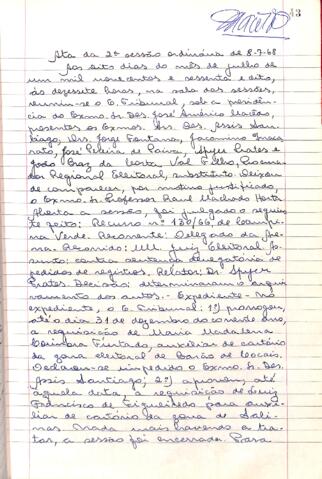 13
Ata da 2ª sessão ordinária de 8-7-68
Aos oito dias do mês de julho de
um mil novecentos e sessenta e oito,
às dezessete horas, na sala das sessões,
reuniu-se o E. Tribunal, sob a presidên-
cia do Exmo. Sr. Des. José Américo Macêdo,
presentes os Exmos. Srs. Des. Assis San-
tiago, Drs. Jorge Fontana, Jacomino Inaca-
rato, José Pereira de Paiva, Spyer Prates e
João Braz da Costa Val Filho, Procura-
dor Regional Eleitoral, substituto. Deixou
de comparecer, por motivo justificado,
o Exmo. Sr. Professor Raul Machado Horta.
Aberta a sessão, foi julgado o seguin-
te feito: Recurso nº 180/66, de Campi-
na Verde. Recorrente: Delegado da Are-
na. Recorrido: MM. Juiz Eleitoral. As-
sunto: contra sentença denegatória de
pedidos de registros. Relator: Dr. Spyer
Prates. Decisão: determinaram o arqui-
vamento dos autos. - Expediente - No
expediente, o E. Tribunal: 1º) prorrogou,
até o dia 31 de dezembro do corrente ano,
a requisição de Maria Madalena
Furtado, auxiliar de cartório
da zona eleitoral de Barão de Cocais.
Declarou-se impedido o Exmo. Sr. Des.
Assis Santiago; 2º) aprovou, até
aquela data, a requisição de Luiz
Francisco de Figueiredo para auxi-
liar de cartório da zona de Sali-
nas. Nada mais havendo a tra-
tar, a sessão foi encerrada. Para